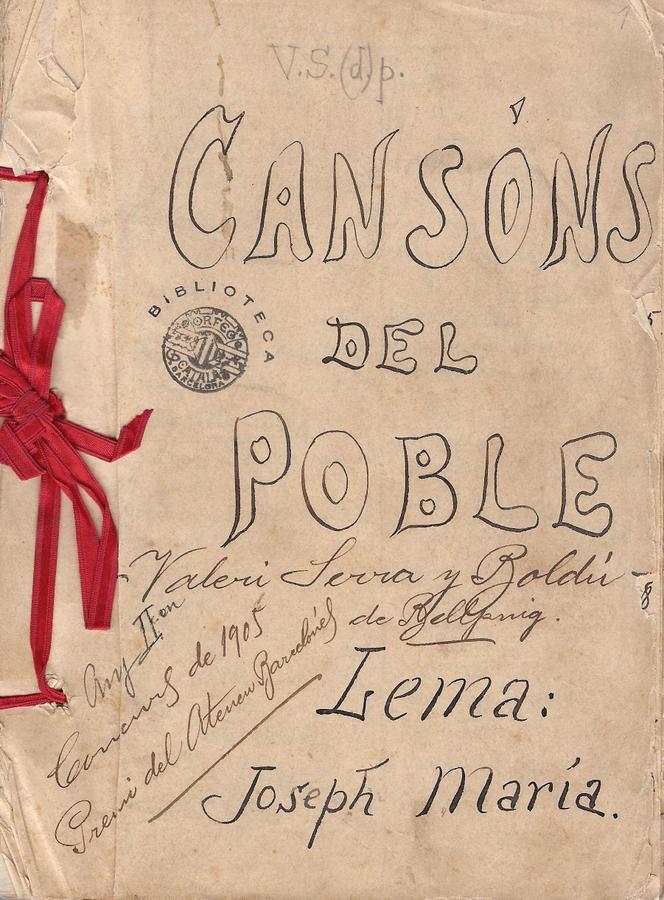 V.S.(d)p.
CANSÓNS
DEL
POBLE
BIBLIOTECA
ORFEÓ
CATALÀ
BARCELONA
Valeri Serra y Boldú
de Bellpuig.
Any II.on
Concurs de 1905
Premi del Ateneu Barcelonés
Lema:
Joseph María.